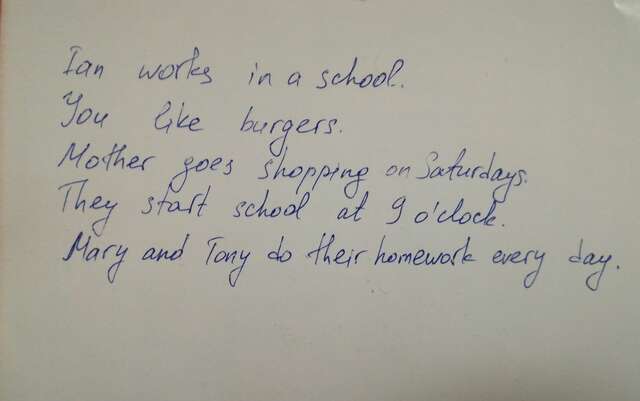 Ian works in a school.
You like burgers.
Mother goes shopping on Saturdays.
They start school at 9 o'clock.
Mary and Tony do their homework every day.